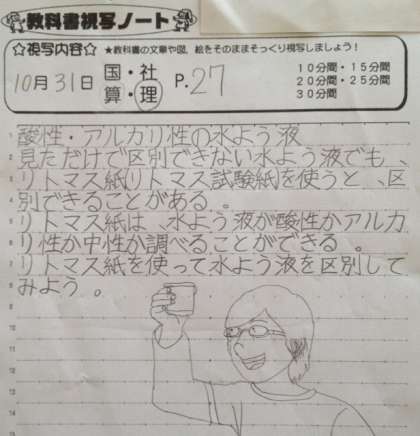 教科書視写ノート
☆視写内容☆ ★教科書の文章や図、絵をそのままそっくり視写しましょう！
10月31日 国・社 P.27 10分間・15分間
算・理 20分間・25分間
30分間
1 酸性・アルカリ性の水よう液
2 見ただけで区別できない水よう液でも、
3 リトマス紙(リトマス試験紙)を使うと、区
4 別できることがある。
5 リトマス紙は、水よう液が酸性かアルカ
6 リ性か中性か調べることができる。
7 リトマス紙を使って水よう液を区別して
みよう。
9
10
11
12
13
14